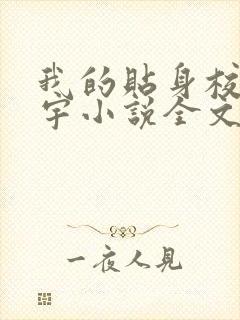 我的貼身校
宇小說全文
一夜人見